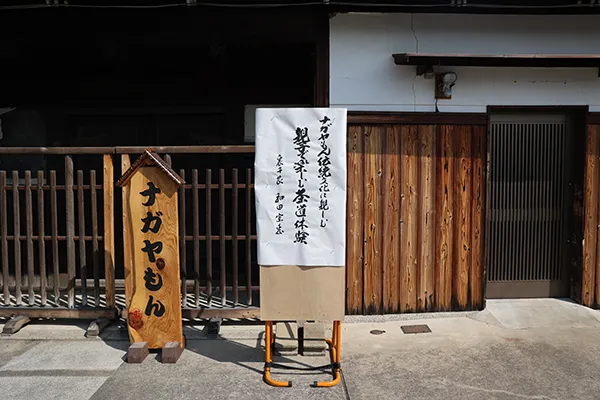 ナガヤもん
ナガヤもん伝統文化に親しむ
親子で楽しむ茶道体験
和田